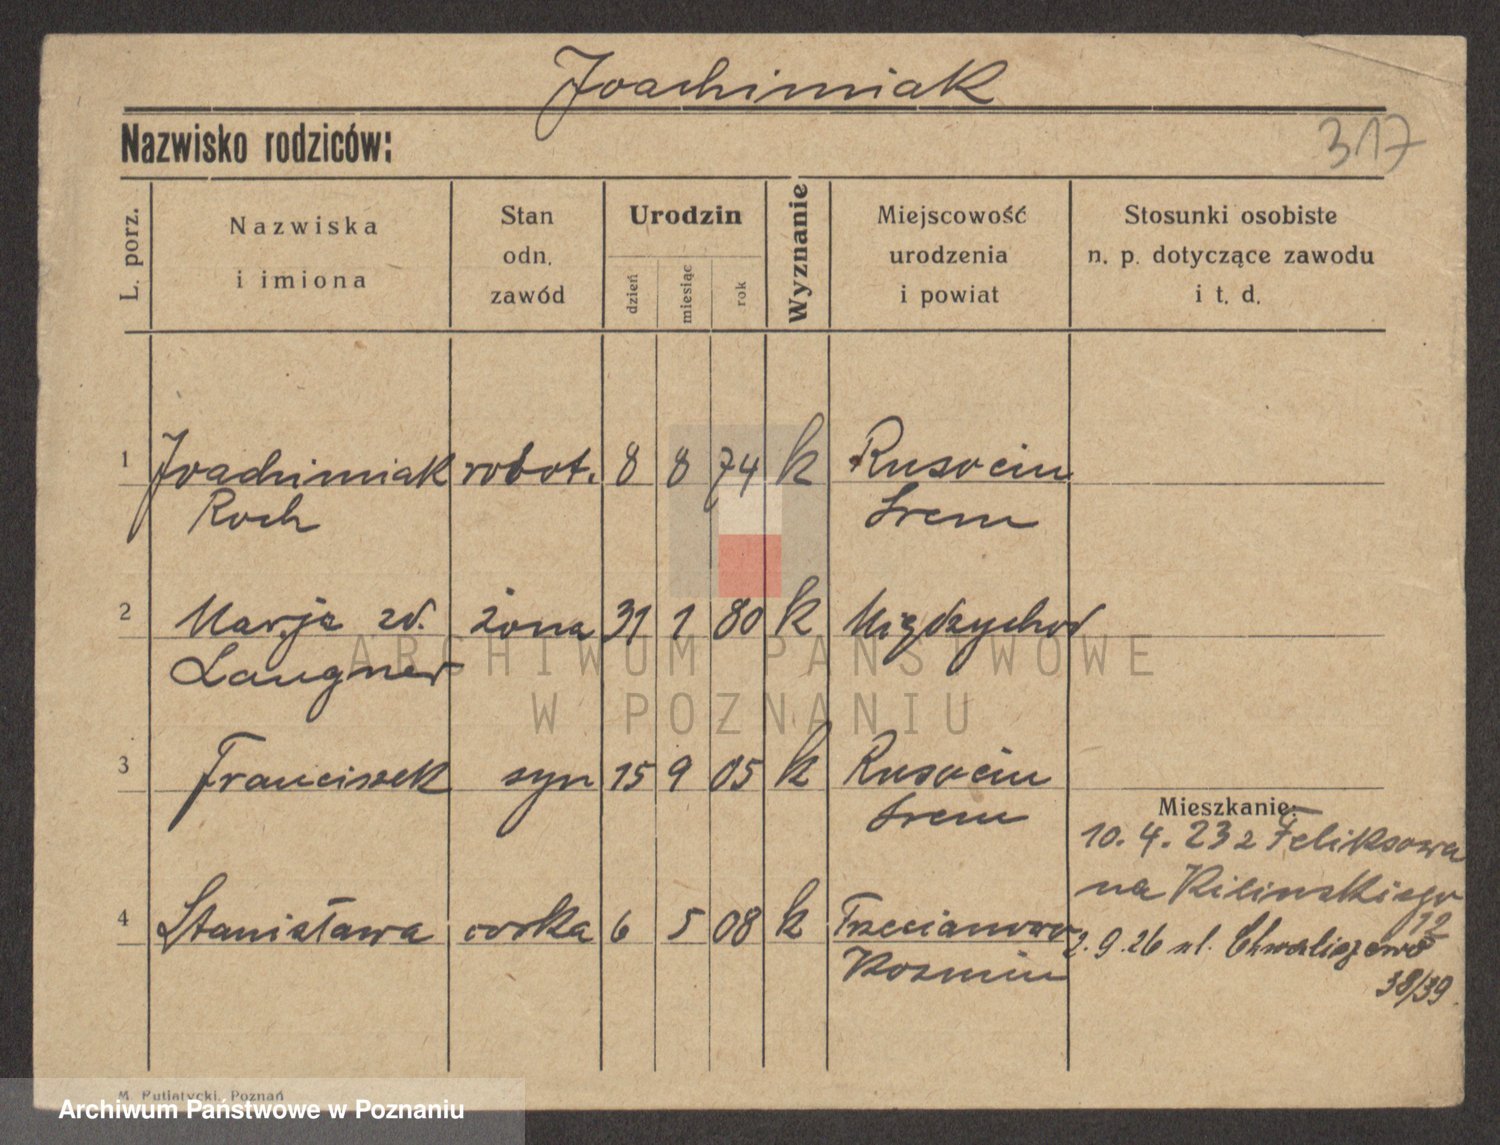 Joachimiak
Nazwisko rodziców:
317
L. porz.
Nazwiska
i imiona
Stan
odn.
zawód
Urodzin
dzień
miesiąc
rok
Wyznanie
Miejscowość
urodzenia
i powiat
Stosunki osobiste
n. p. dotyczące zawodu
i t. d.
1 Joachimiak robot. 8 8 74 k Rusocin
Roch Srem
2 Marja zd. żona 31 1 80 k Międzychod
Langner
3 Franciszek syn 15 9 05 k Rusocin
Srem
4 Stanisława corka 6 5 08 k Trzecianowo
Kozmin
Mieszkanie:
10. 4. 23 z Feliksowa
na Kilinskiego
12
2. 9. 26 ul. Chwaliszewo
38/39
ARCHIWUM PAŃSTWOWE
W POZNANIU
M. Putiatycki, Poznań
Archiwum Państwowe w Poznaniu